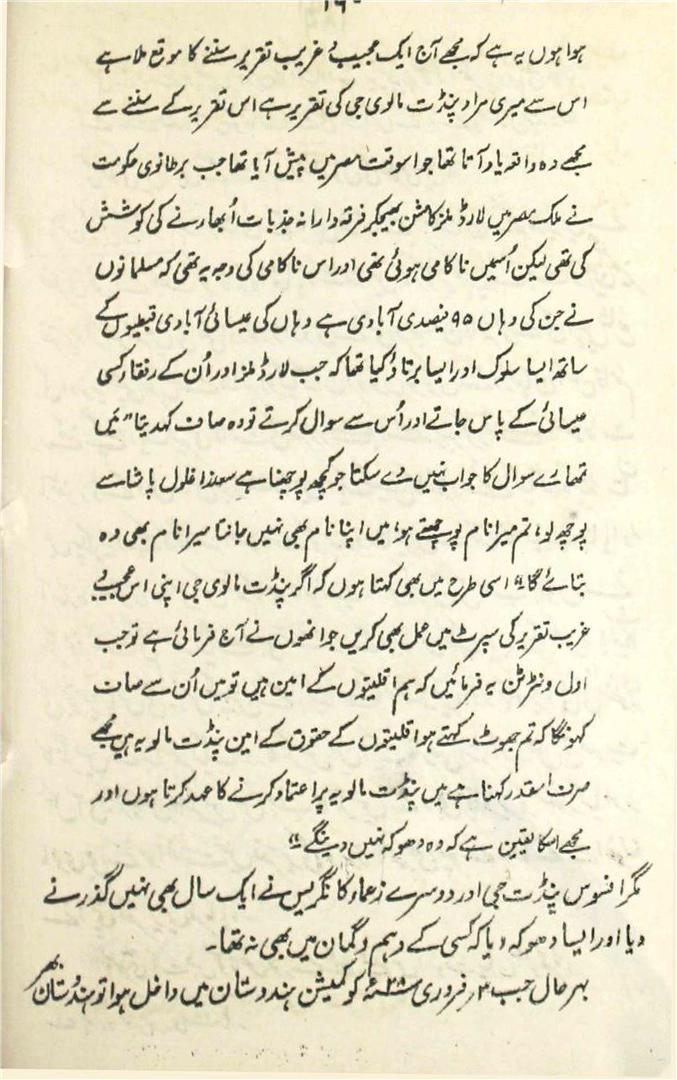 ۱۶۰
ہوا ہوں یہ ہے کہ مجھے آج ایک عجیب و غریب تقریر سننے کا موقع ملا ہے
اس سے میری مراد پنڈت مالوی جی کی تقریر ہے اس تقریر کے سننے سے
مجھے وہ واقعہ یاد آتا تھا جو اسوقت مصر میں پیش آیا تھا جب برطانوی حکومت
نے ملک مصر میں لارڈ ملز کا مشن بھیجکر فرقہ وارانہ جذبات اُبھارنے کی کوشش
کی تھی لیکن اُسمیں ناکامی ہوئی تھی اور اس ناکامی کی وجہ یہ تھی کہ مسلمانوں
نے جن کی وہاں ۹۵ فیصدی آبادی ہے وہاں کی عیسائی آبادی قبطیوں کے
ساتھ ایسا سلوک اور ایسا برتاؤ کیا تھا کہ جب لارڈ ملز اور اُن کے رفقاء کسی
عیسائی کے پاس جاتے اور اُس سے سوال کرتے تو وہ صاف کہدیتا "میں
تمھارے سوال کا جواب نہیں دے سکتا جو کچھ پوچھنا ہے سعد زاغلول پاشا سے
پوچھ لو، تم میرا نام پوچھتے ہو، میں اپنا نام بھی نہیں جانتا میرا نام بھی وہ
بتائے گا" اسی طرح میں بھی کہتا ہوں کہ اگر پنڈت مالوی جی اپنی اس عجیب و
غریب تقریر کی سپرٹ میں عمل بھی کریں جو انھوں نے آج فرمائی ہے تو جب
اول ونٹرٹن یہ فرمائیں کہ ہم اقلیتوں کے امین ہیں تو میں اُن سے صاف
کہونگا کہ تم جھوٹ کہتے ہو اقلیتوں کے حقوق کے امین پنڈت مالویہ ہیں مجھے
صرف اسقدر کہنا ہے میں پنڈت مالویہ پر اعتماد کرنے کا عہد کرتا ہوں اور
مجھے اسکا یقین ہے کہ وہ دھوکہ نہیں دینگے"
مگر افسوس پنڈت جی اور دوسرے زعماء کانگریس نے ایک سال بھی نہیں گذرنے
دیا اور ایسا دھوکہ دیا کہ کسی کے وہم و گمان میں بھی نہ تھا۔
بہر حال جب ۳ر فروری ۲۸ء کو کمیشن ہندوستان میں داخل ہوا تو ہندوستان بھر